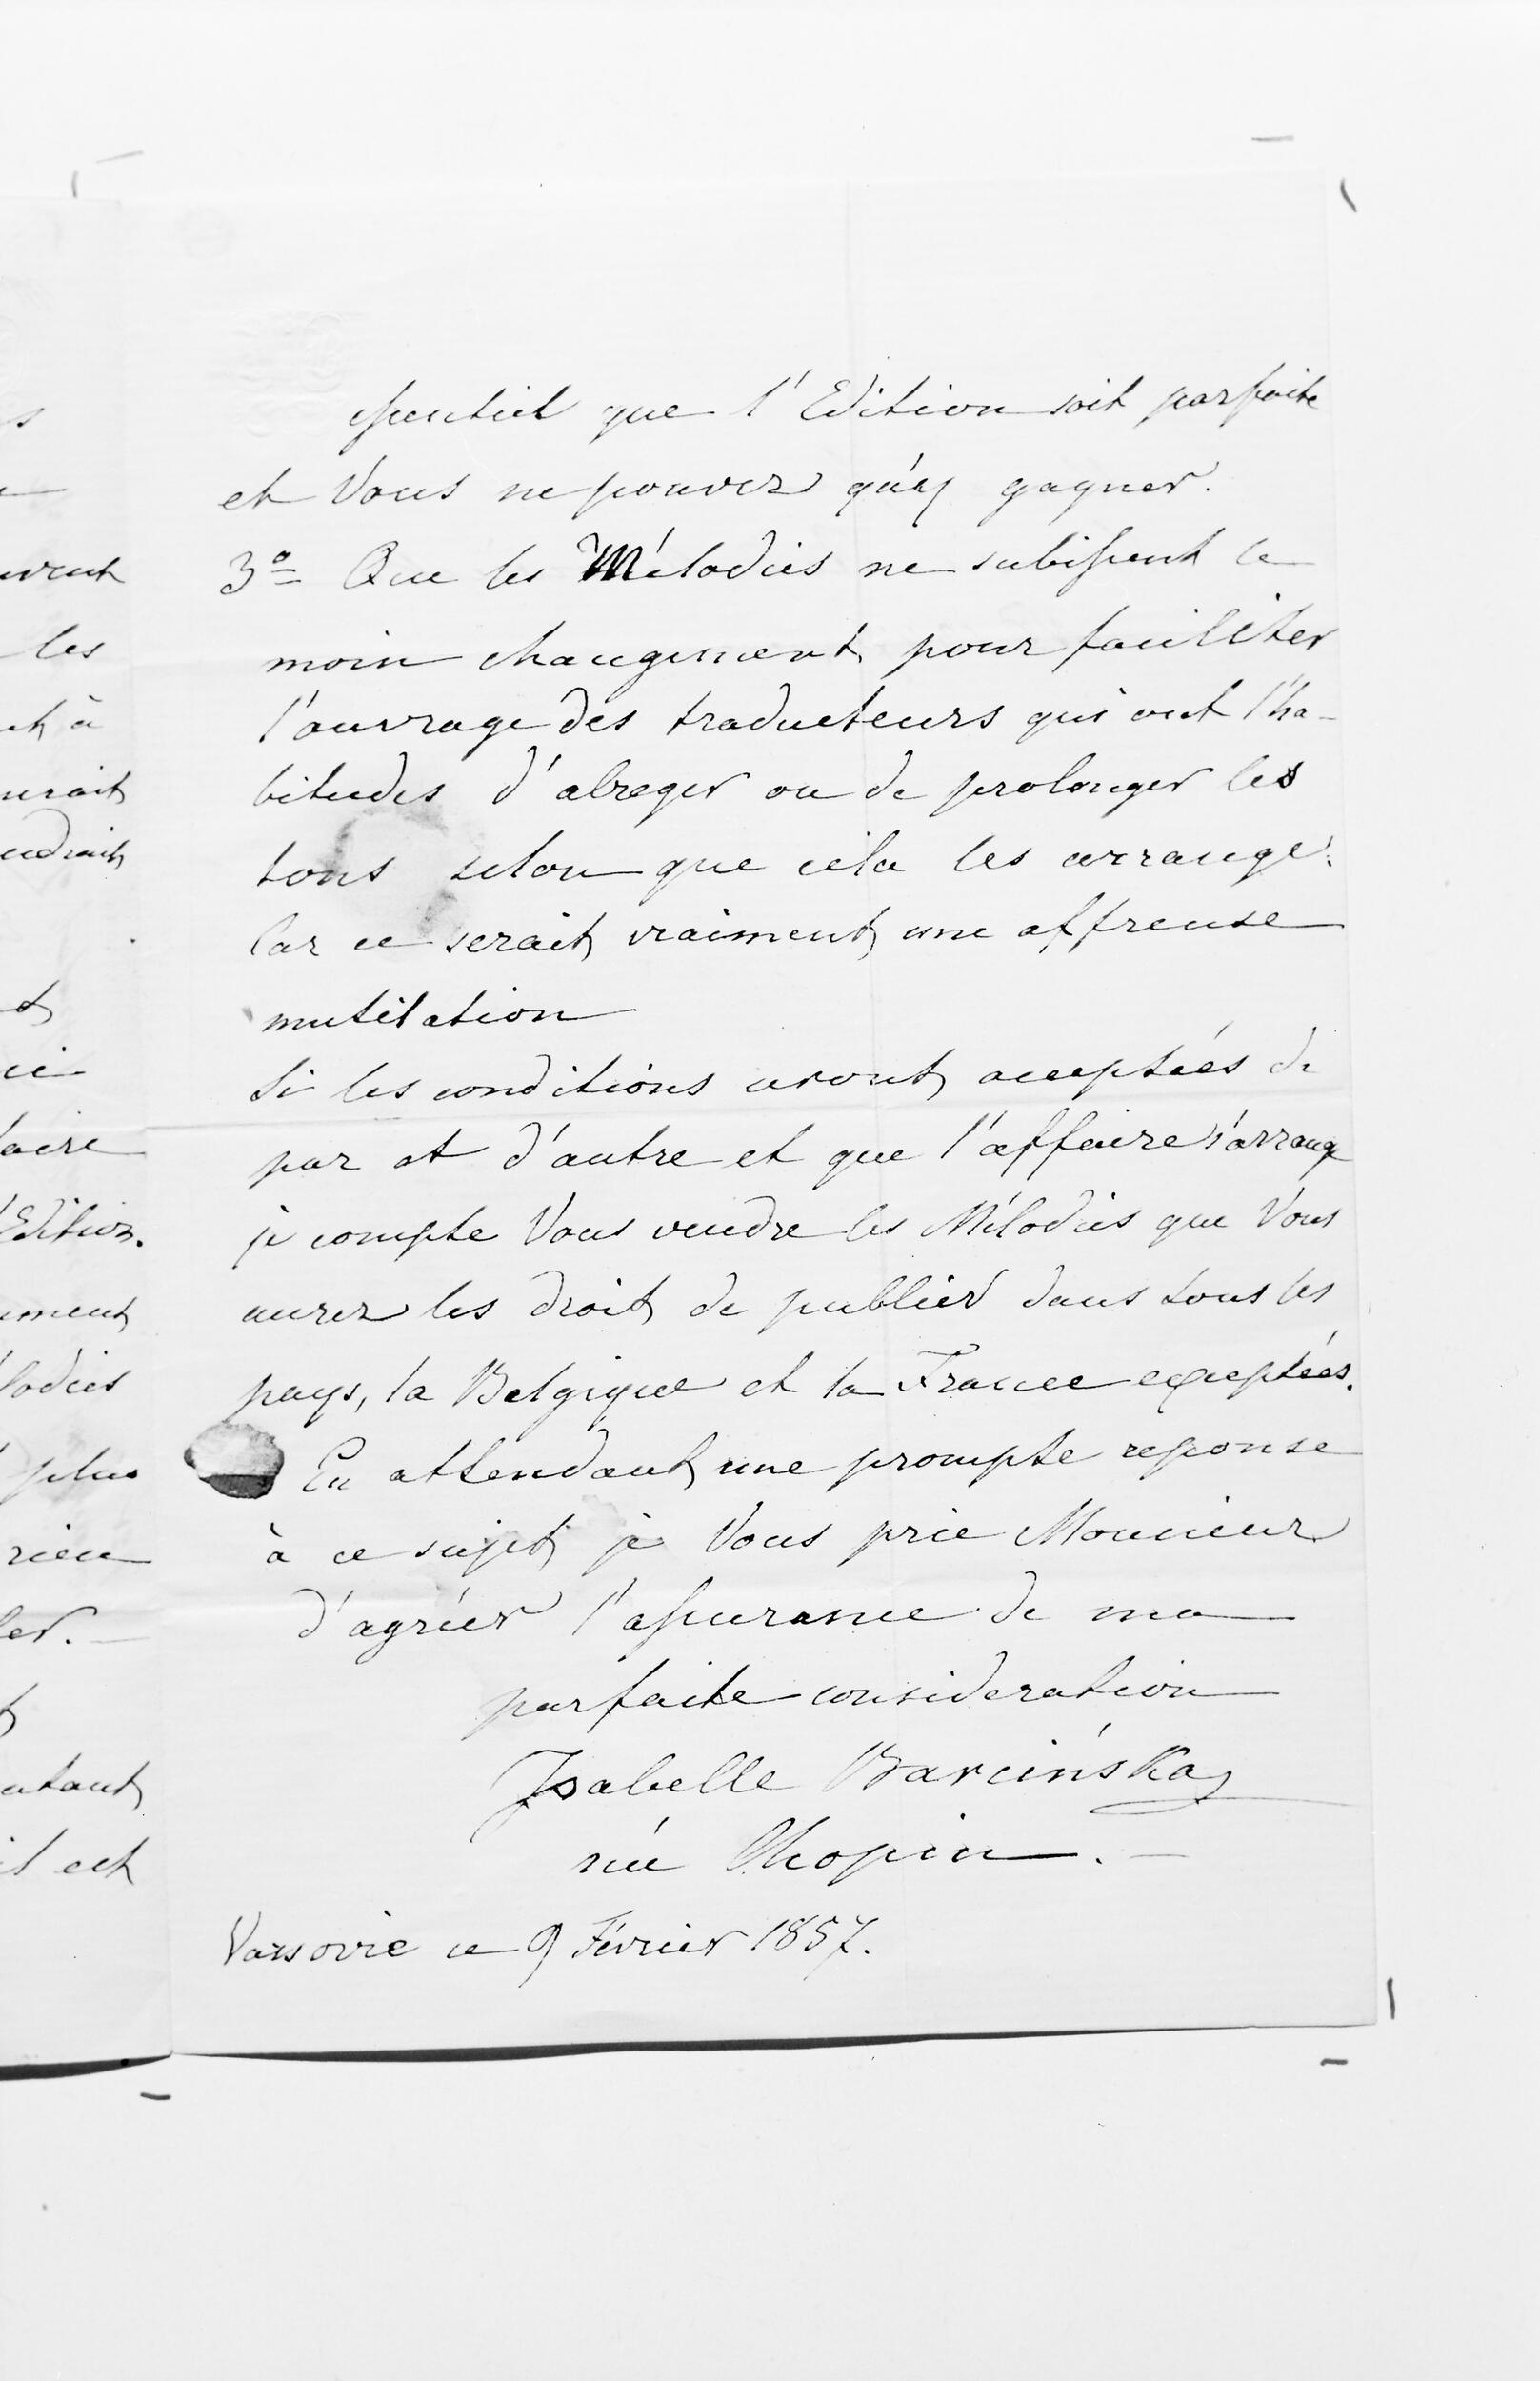 essentiel que l'Edition soit parfaite
et Vous ne pouvez qu'y gagner.
3º Que les Mélodies ne subissent le
moin changement pour faciliter
l'ouvrage des traducteurs qui ont l'ha-
bitudes d'abreger ou de prolonger les
tons selon que cela les arrange.
Car ce serait vraiment une affreuse
mutilation
Si les conditions seront acceptées de
par et d'autre et que l'affaire s'arrange
je compte Vous vendre les Mélodies que Vous
aurez les droit de publier dans tous les
pays, la Belgique et la France exceptées.
En attendant une prompte reponse
à ce sujet je Vous prie Monsieur
d'agréer l'assurance de ma
parfaite consideration
Isabelle Barcińska
née Chopin.
Varsovie ce 9 Février 1857.